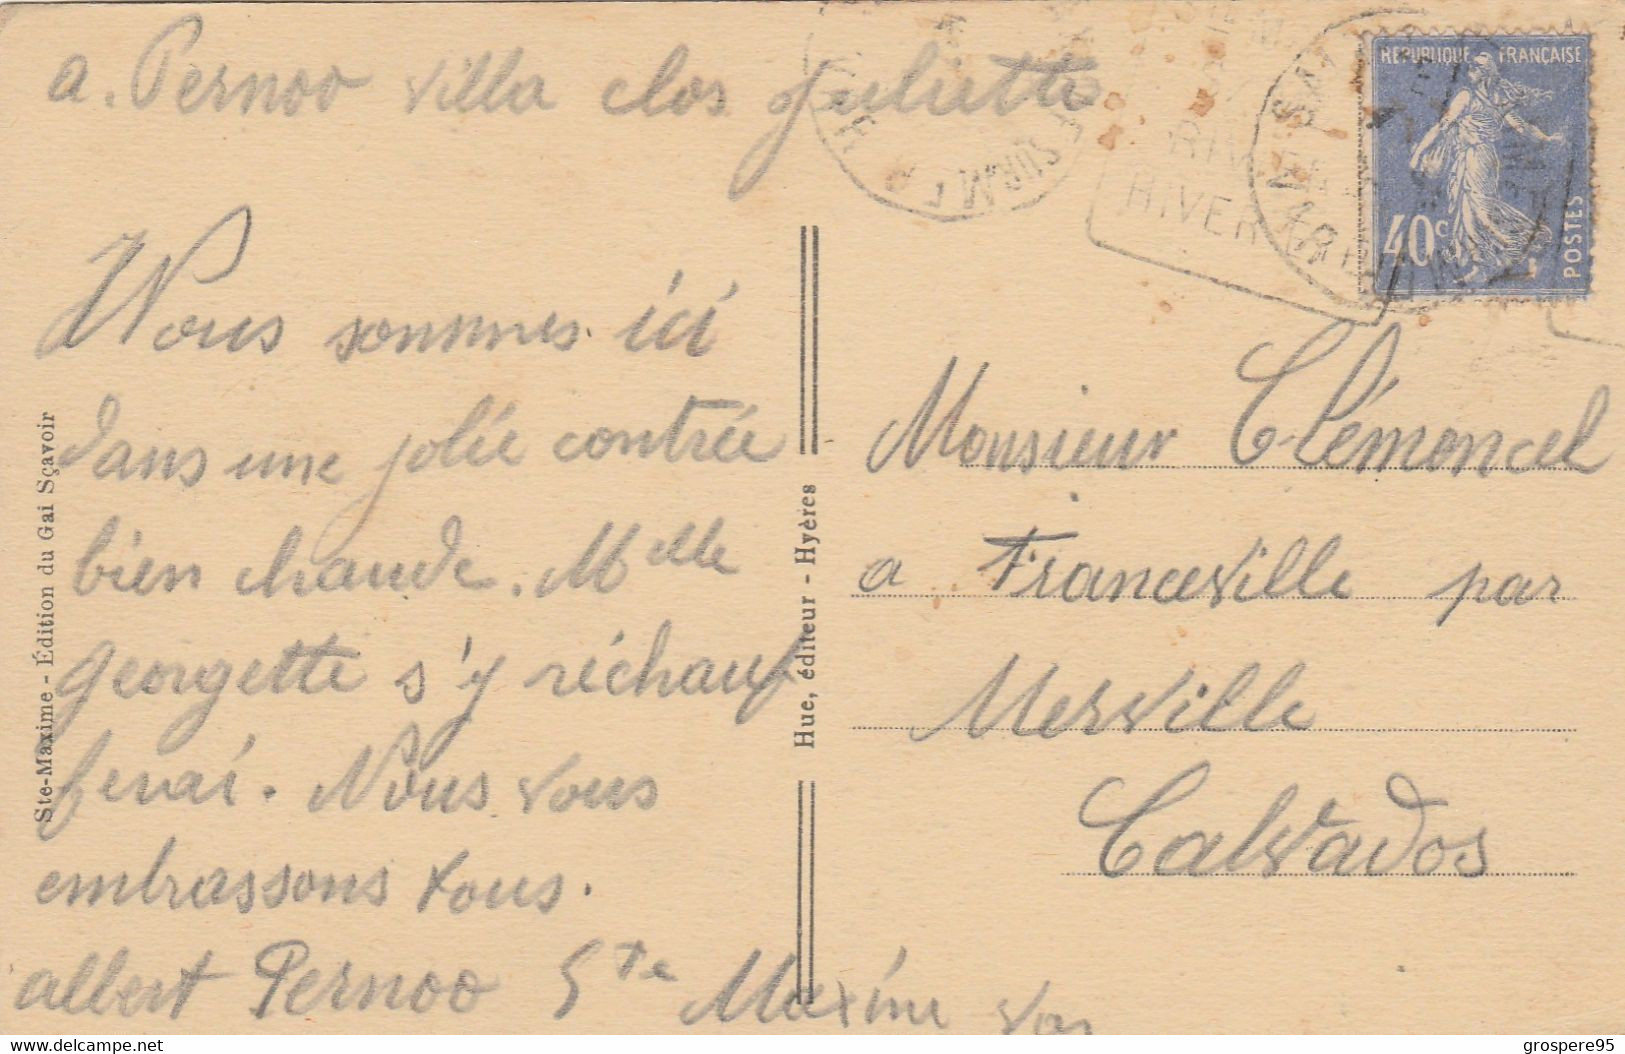 a. Pernoo villa clos Juliette
Nous sommes ici
dans une jolie contrée
bien chaude. Melle
georgette s'y réchauf
ferai. Nous vous
embrassons tous.
albert Pernoo Ste Maxime Var
Ste-Maxime - Édition du Gai Sçavoir
Hue, éditeur - Hyères
RÉPUBLIQUE FRANÇAISE
40c
POSTES
HIVER
Monsieur Clémoncel
a Franceville par
Merville
Calvados
delcampe.net
grospere95